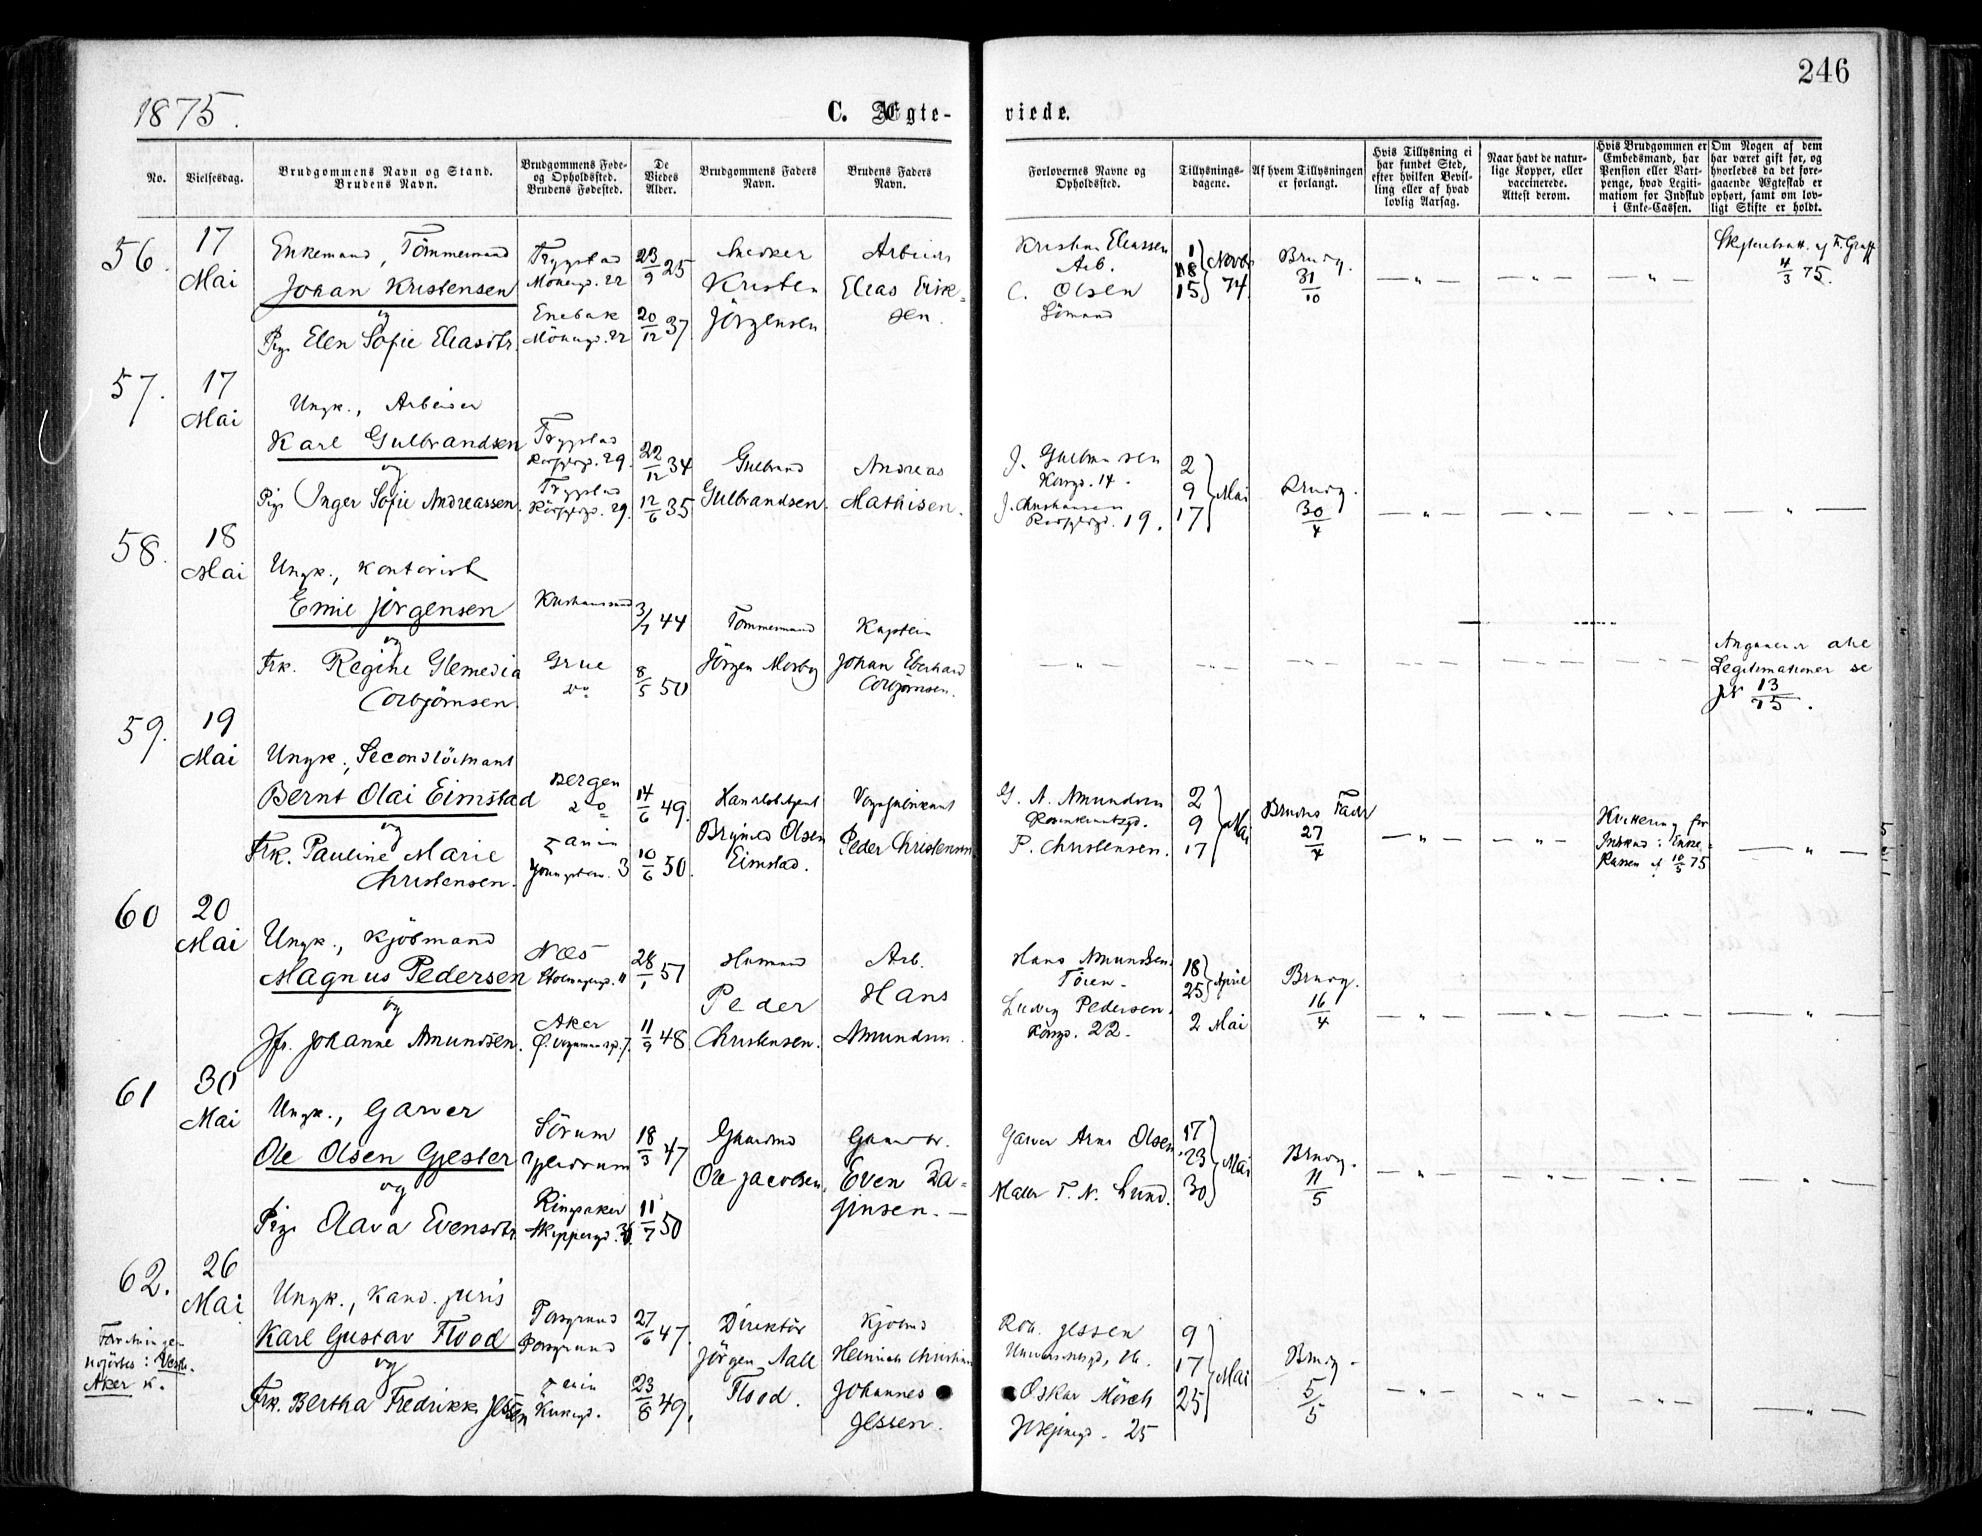 246
1875.
C. Ægte-
viede.
No.
Vielsesdag.
Brudgommens Navn og Stand.
Brudens Navn.
Brudgommens Føde-
og Opholdssted.
Brudens Fødested.
De
Viedes
Alder.
Brudgommens Faders
Navn.
Brudens Faders
Navn.
Forlovernes Navne og
Opholdssted.
Tillysnings-
dagene.
Af hvem Tillysningen
er forlangt.
Hvis Tillysning ei
har fundet Sted,
efter hvilken Bevil-
ling eller af hvad
lovlig Aarsag.
Naar havt de natur-
lige Kopper, eller
vaccinerede.
Attest derom.
Hvis Brudgommen er
Embedsmand, har
Pension eller Vart-
penge, hvad Legiti-
mation for Indskud
i Enke-Cassen.
Om Nogen af dem
har været gift før, og
hvorledes da det fore-
gaaende Ægteskab er
ophørt, samt om lov-
ligt Skifte er holdt.
56.
17
Mai
Enkemand, Tömmermand
Johan Kristensen
og
Pige Elen Sofie Eliasdtr.
Trygstad
Mönergd. 22
Enebak
Mönergd. 22
23/9 25
20/12 37
Kristen
Jörgensen
Elias Erik-
sen.
Kristian Eliassen
Arb.
C. Olsen
Sömand
1
8
15
Novbr
74
Brudg.
31/10
4/3 75.
57.
17
Mai
Ungk., Arbeider
Karl Gulbrandsen
og
Pige Inger Sofie Andreassen.
Trygstad
29.
Trygstad
29.
22/12 34
12/6 35
Gulbrand
Gulbrandsen.
Andreas
Mathisen.
J. Gulbrandsen
14.
J. Christiansen
19.
2
9
17
Mai
Brudg.
30/4
58.
18
Mai
Ungk., Kontorist
Emil Jörgensen
og
Frk. Regine
Corbjörnsen.
Kristianssand
Grue
do
3/7 44
8/5 50
Tömmermand
Jörgen Morboy
Kaptein
Johan Eberhard
Corbjörnsen.
Angaaende alle
Legitimationer se
13/75.
59.
19
Mai
Ungk., Secondlöitnant
Bernt Olai Eimstad
og
Frk. Pauline Marie
Christensen.
Bergen
do
3
14/6 49.
10/6 50.
Handelsbetjent
Olsen
Eimstad.
Vognfabrikant
Peder Christensen
G. A. Amundsen
Rosenkrantzgd.
P. Christensen.
2
9
17
Mai
Brudens Fader
27/4
Kvittering for
Indskud i Enke-
Kassen af 10/5 75
60
20
Mai
Ungk., Kjöbmand
Magnus Pedersen
og
Jfr. Johanne Amundsen.
Næs
Aker
7.
28/1 51
11/9 48
Husmand
Peder
Christensen.
Arb.
Hans
Amundsen.
Hans Amundsen.
Ludvig Pedersen.
22.
18
25
April
2 Mai
Brudg.
16/4
61
30
Mai
Ungk., Garver
Ole Olsen Gjester
og
Pige Olava Evensdtr.
Sörum
Ringsaker
Skippergd.
18/3 47
11/7 50
Gaardmd
Ole Jacobsen.
Even Za-
Garver Arne Olsen
Maler T. N. Lund.
17
23
30
Mai
Brudg.
11/5
62.
26
Mai
Ungk., Kand. juris
Karl Gustav Flood
og
Frk. Bertha Fredrikke Jessen
Porsgrund
Porsgrund
Kirkegd.
27/6 47.
23/8 49.
Direktör
Jörgen Aall
Flood.
Kjöbmd
Heinrich Christian
Johannes
Jessen.
Rob. Jessen
Universitetsgd.
Oskar Mörch
25
9
17
25
Mai
Brudg.
5/5
Forretningen
udförtes i Vestre
Aker K.